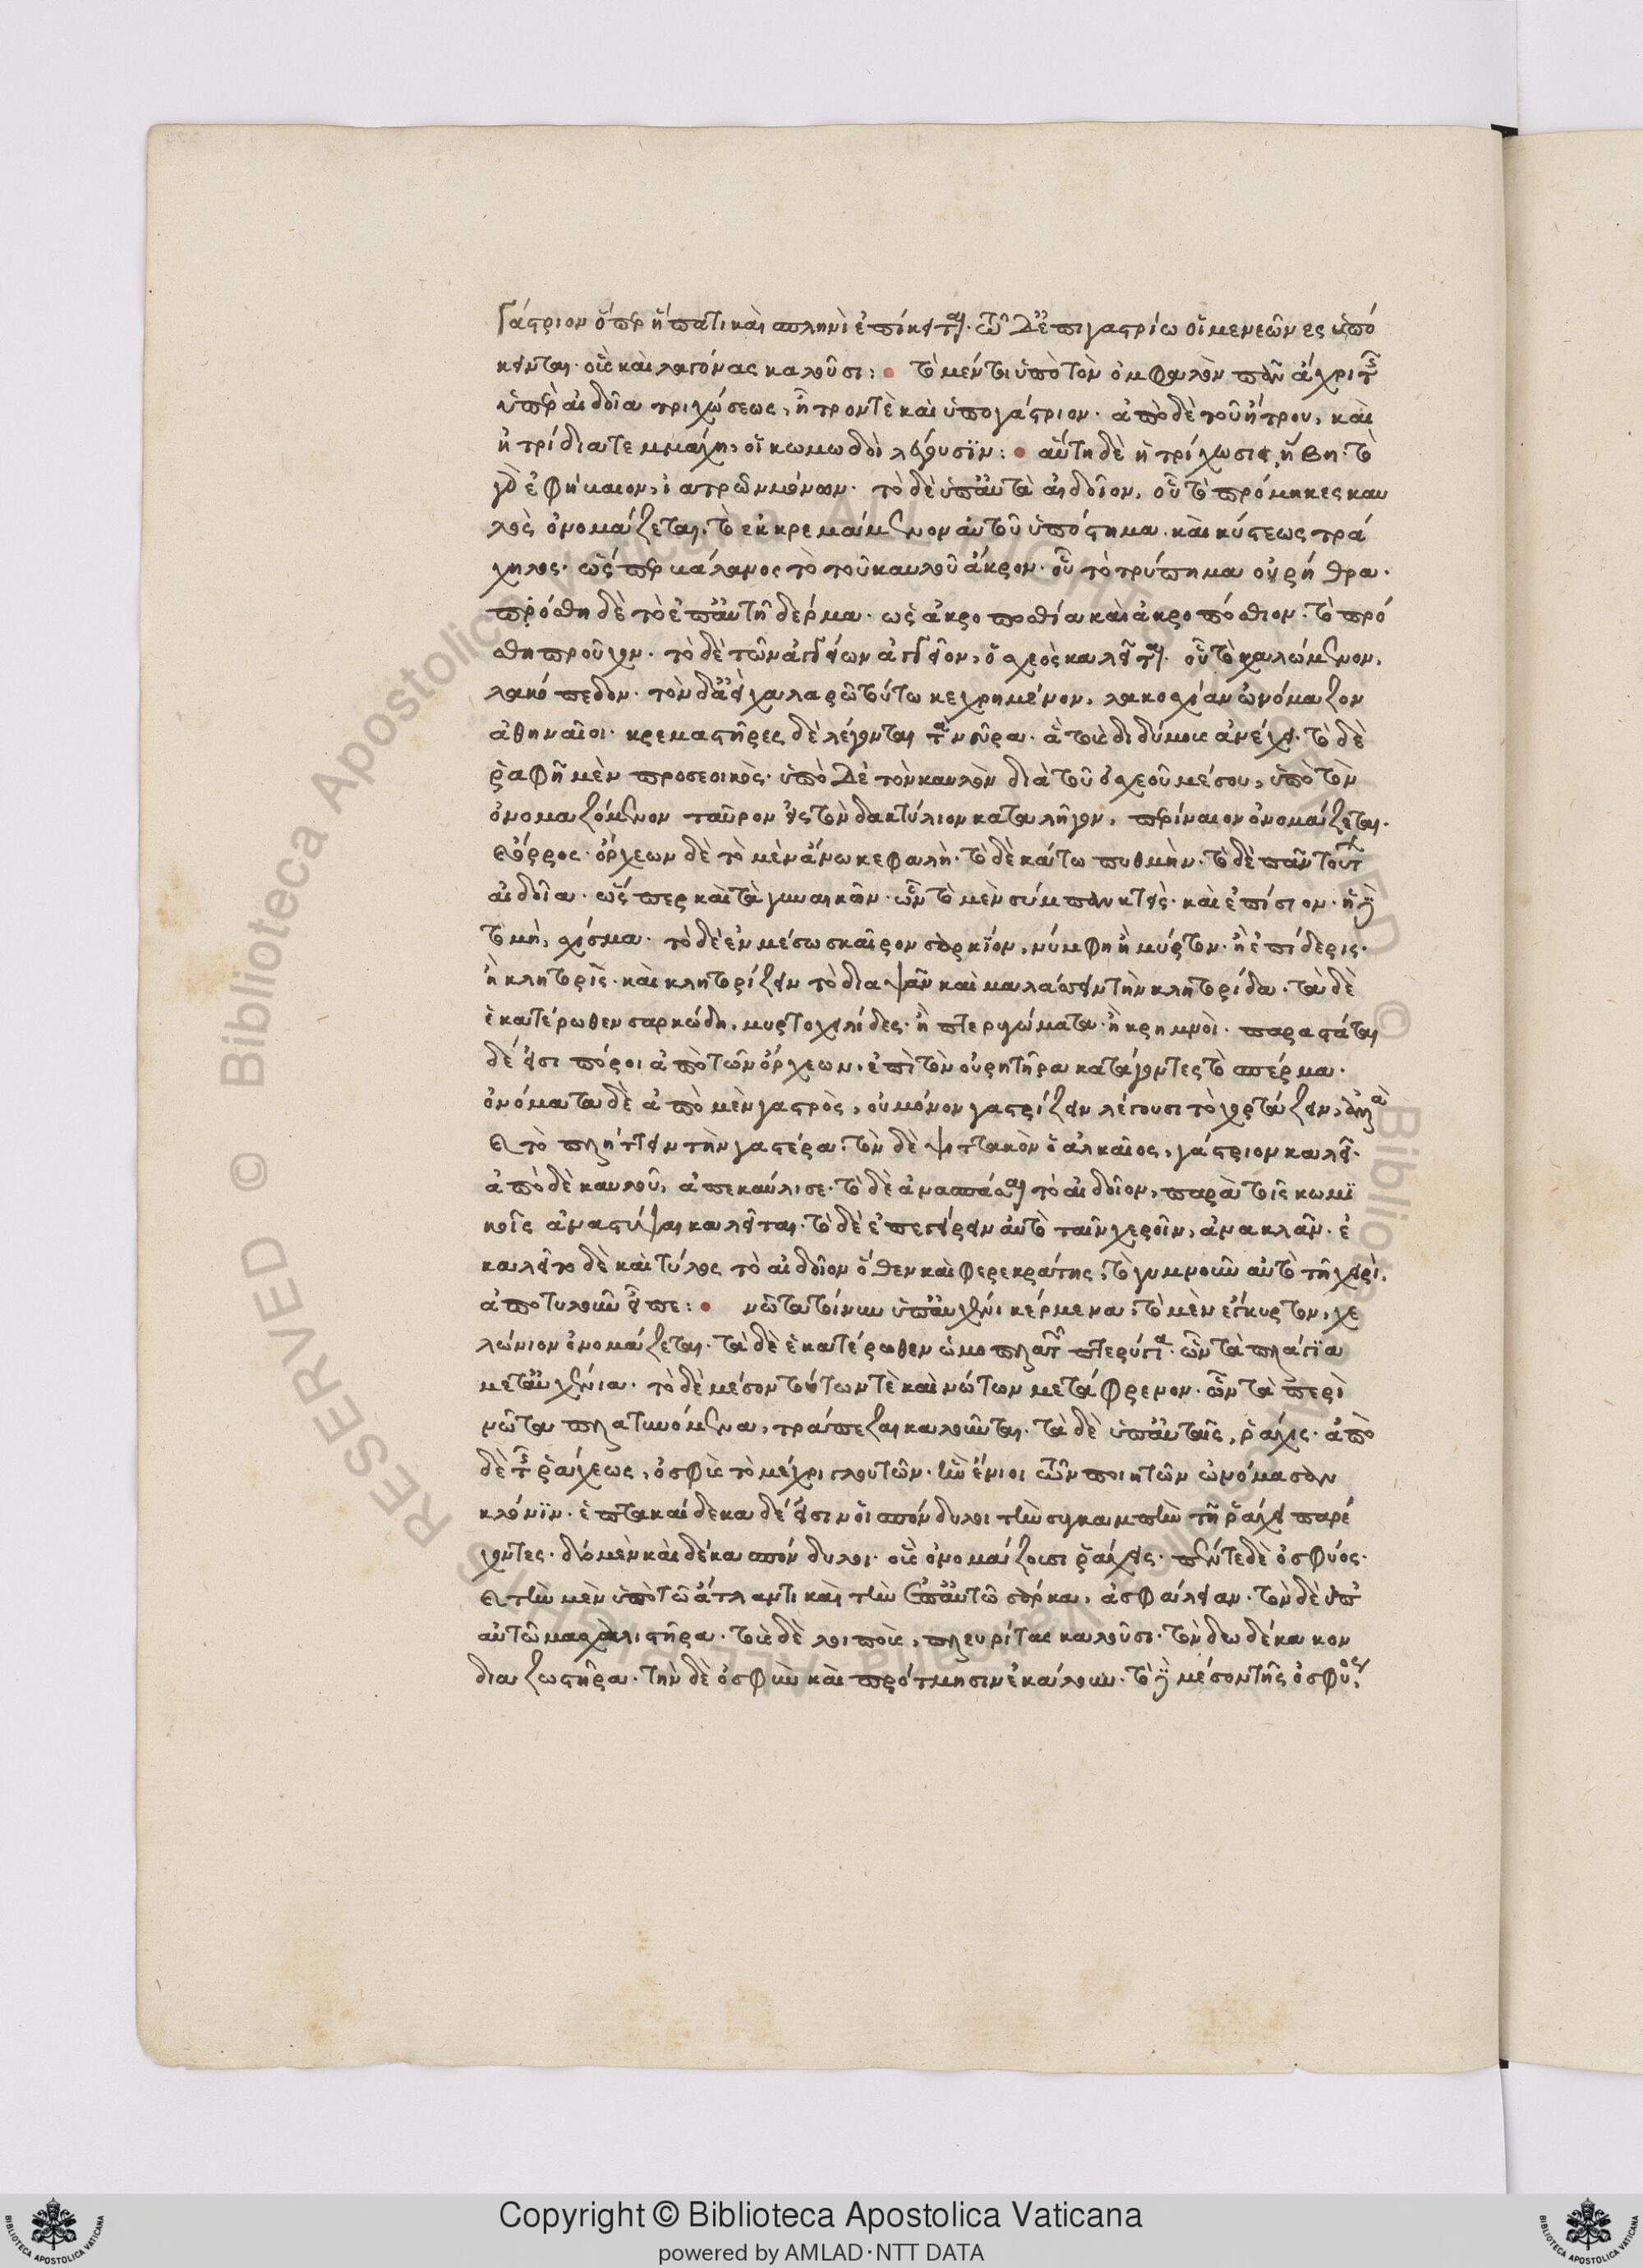 γάστριον ὅπερ ἥπατι καὶ σπληνὶ ἐπίκειται. τῶ δὲ ἐπιγαστρίω οἱ μὲν κενεῶνες ὑπό
κεινται. οὓς καὶ λαγόνας καλοῦσι: τὸ μέντοι ὑπὸ τὸν ὀμφαλὸν πᾶν ἄχρι τῆς
ὑπὲρ αἰδοῖα τριχώσεως, ἦτρόν τε καὶ ὑπογάστριον. ἀπὸ δὲ τοῦ ἤτρου, καὶ
ἠτριδιαῖα τεμμάχη, οἱ κωμωδοὶ λέγουσϊν: αὕτη δὲ ἡ τρίχωσις, ἥβη. τὸ
γὰρ ἐφήβαιον, ἰατρῶν μόνων. τὸ δὲ ὑπ' αὐτὰ αἰδοῖον, οὗ τὸ πρόμηκες καυ
λὸς ὀνομάζεται. τὸ ἐκκρεμάμενον αὐτοῦ ὑπόστημα. καὶ κύστεως τρά
χηλος. ὥσπερ βάλανος τὸ τοῦ καυλοῦ ἄκρον. οὗ τὸ τρύπημα οὐρήθρα.
πόσθη δὲ τὸ ἐπ' αὐτῆ δέρμα. ὡς ἀκροποσθία καὶ ἀκροπόσθιον. τὸ πρό
σθη προὖχον. τὸ δὲ τῶν ἀγγείων ἀγγεῖον, ὄσχεος καλεῖται. οὗ τὸ χαλώμενον,
λακόπεδον. τὸν δ' ἀεὶ χαλαρῶ τούτω κεχρημένον, λακοσχέαν ὠνόμαζον
ἀθηναῖοι. κρεμαστῆρες δὲ λέγονται τὰ νεῦρα. ἃ τοὺς διδύμους ἀνέχει. τὸ δὲ
ῥαφῆ μὲν προσεοικὸς. ὑπὸ δὲ τὸν καυλὸν διὰ τοῦ ὀσχεοῦ μέσου, ὑπὸ τὸν
ὀνομαζόμενον ταῦρον εἰς τὸν δακτύλιον καταλῆγον, περίναιον ὀνομάζεται.
ὄρρος. ὄρχεων δὲ τὸ μὲν ἄνω κεφαλὴ. τὸ δὲ κάτω πυθμὴν. τὸ δὲ πᾶν τοῦτο
αἰδοῖα. ὥσπερ καὶ τὰ γυναικῶν. ὧν τὸ μὲν σύμπαν κτεὶς. καὶ ἐπίσιον. ἡ δὲ
τομὴ, σχίσμα. τὸ δὲ ἐν μέσω σκαῖρον σαρκΐον, νύμφη ἢ μύρτον. ἢ ἐπίδερις.
ἢ κλητορὶς. καὶ κλητορίζειν τὸ διαψᾶν καὶ μαλάσσειν τὴν κλητορίδα. τὰ δὲ
ἑκατέρωθεν σαρκώδη, μυρτοχειλίδες. ἢ πτερυγώματα. ἢ κρημνοὶ. παραστάται
δέ εἰσι πόροι ἀπὸ τῶν ὄρχεων. ἐπὶ τὸν οὐρητῆρα κατάγοντες τὸ σπέρμα.
ὀνόματα δὲ ἀπὸ μὲν γαστρὸς, οὐ μόνον γαστρίζειν λέγουσι τὸ χορτάζειν, ἀλλὰ
καὶ τὸ πλήττειν τὴν γαστέρα. τὸν δὲ ψιττακὸν ὁ ἀλκαῖος, γάστριον καλεῖ.
ἀπὸ δὲ καυλοῦ, ἀπεκαύλισε. τὸ δὲ ἀνασπάσαι τὸ αἰδοῖον, παρὰ τοῖς κωμϊ
κοῖς ἀναστύψαι καλεῖται. τὸ δὲ ἐπεγείρειν αὐτὸ ταῖν χεροῖν, ἀνακλᾶν. ἐ
καλεῖτο δὲ καὶ τύλος τὸ αἰδοῖον ὅθεν καὶ φερεκράτης, τὸ γυμνοῦν αὐτὸ τῆ χειρὶ.
ἀποτυλοῦν εἶπε: νῶτα τοίνυν ὑπ' αὐχένι κείμενα, τὸ μὲν ἔγκυρτον, χε
λώνιον ὀνομάζεται. τὰ δὲ ἑκατέρωθεν ὠμοπλατῶν πτερύγια. ὧν τὰ πλαγΐα
μεταυχένια. τὸ δὲ μέσον τούτων τὲ καὶ νώτων μετάφρενον. ὧν τὰ περὶ
νῶτα πλατυνόμενα, τράπεζαι καλοῦνται. τὰ δὲ ὑπ' αὐταῖς, ῥάχις. ἀπὸ
δὲ τῆς ῥάχεως, ὀσφὺς τὸ μέχρι γλουτῶν. ἣν ἔνιοι τῶν ποιητῶν ὠνόμασαν
κλόνϊν. ἑπτακαίδεκα δέ εἰσιν οἱ σπόνδυλοι τὴν συγκαμπὴν τῆ ῥάχει παρέ
χοντες. δύο μὲν καὶ δέκα σπόνδυλοι. οὓς ὀνομάζουσι ῥάχεις. πέντε δὲ ὀσφύος.
καὶ τὴν μὲν ὑπὸ τῶ ἄτλαντι καὶ τὴν ἐπ' αὐτῶ σάρκα, ἀσφάλειαν. τὸν δὲ ὑπ'
αὐτῶ μασχαλιστῆρα. τοὺς δὲ λοιποὺς, πλευρίτας καλοῦσι. τὸν δωδέκακον
διαζωστῆρα. τὴν δὲ ὀσφὺν καὶ πρότμησιν ἐκάλουν. τὸ δὲ μέσον τῆς ὀσφύος,
Copyright © Biblioteca Apostolica Vaticana
powered by AMLAD·NTT DATA